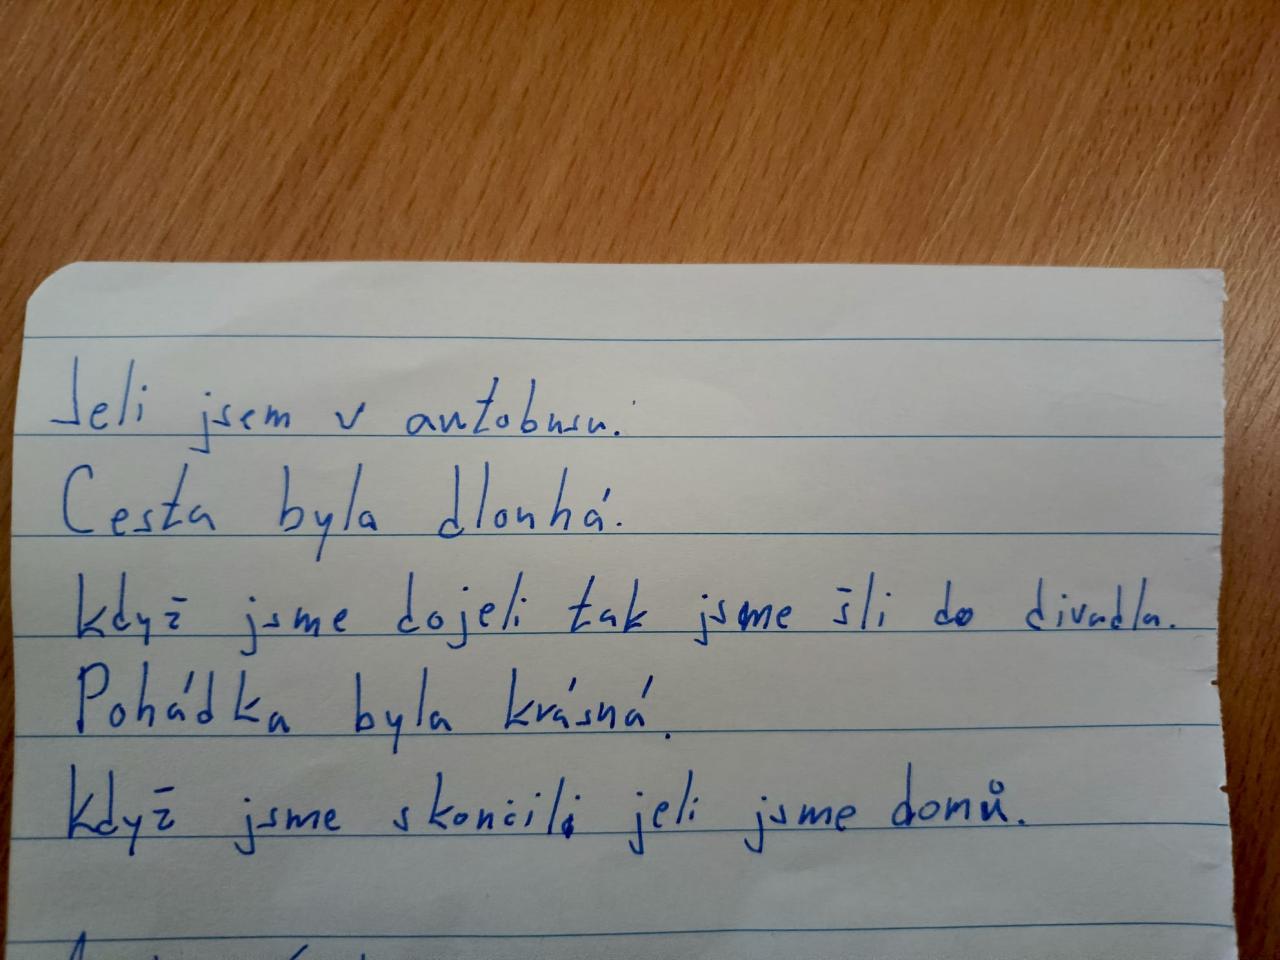 Jeli jsem v autobusu.
Cesta byla dlouhá.
Když jsme dojeli tak jsme šli do divadla.
Pohádka byla krásná.
Když jsme skončili jeli jsme domů.